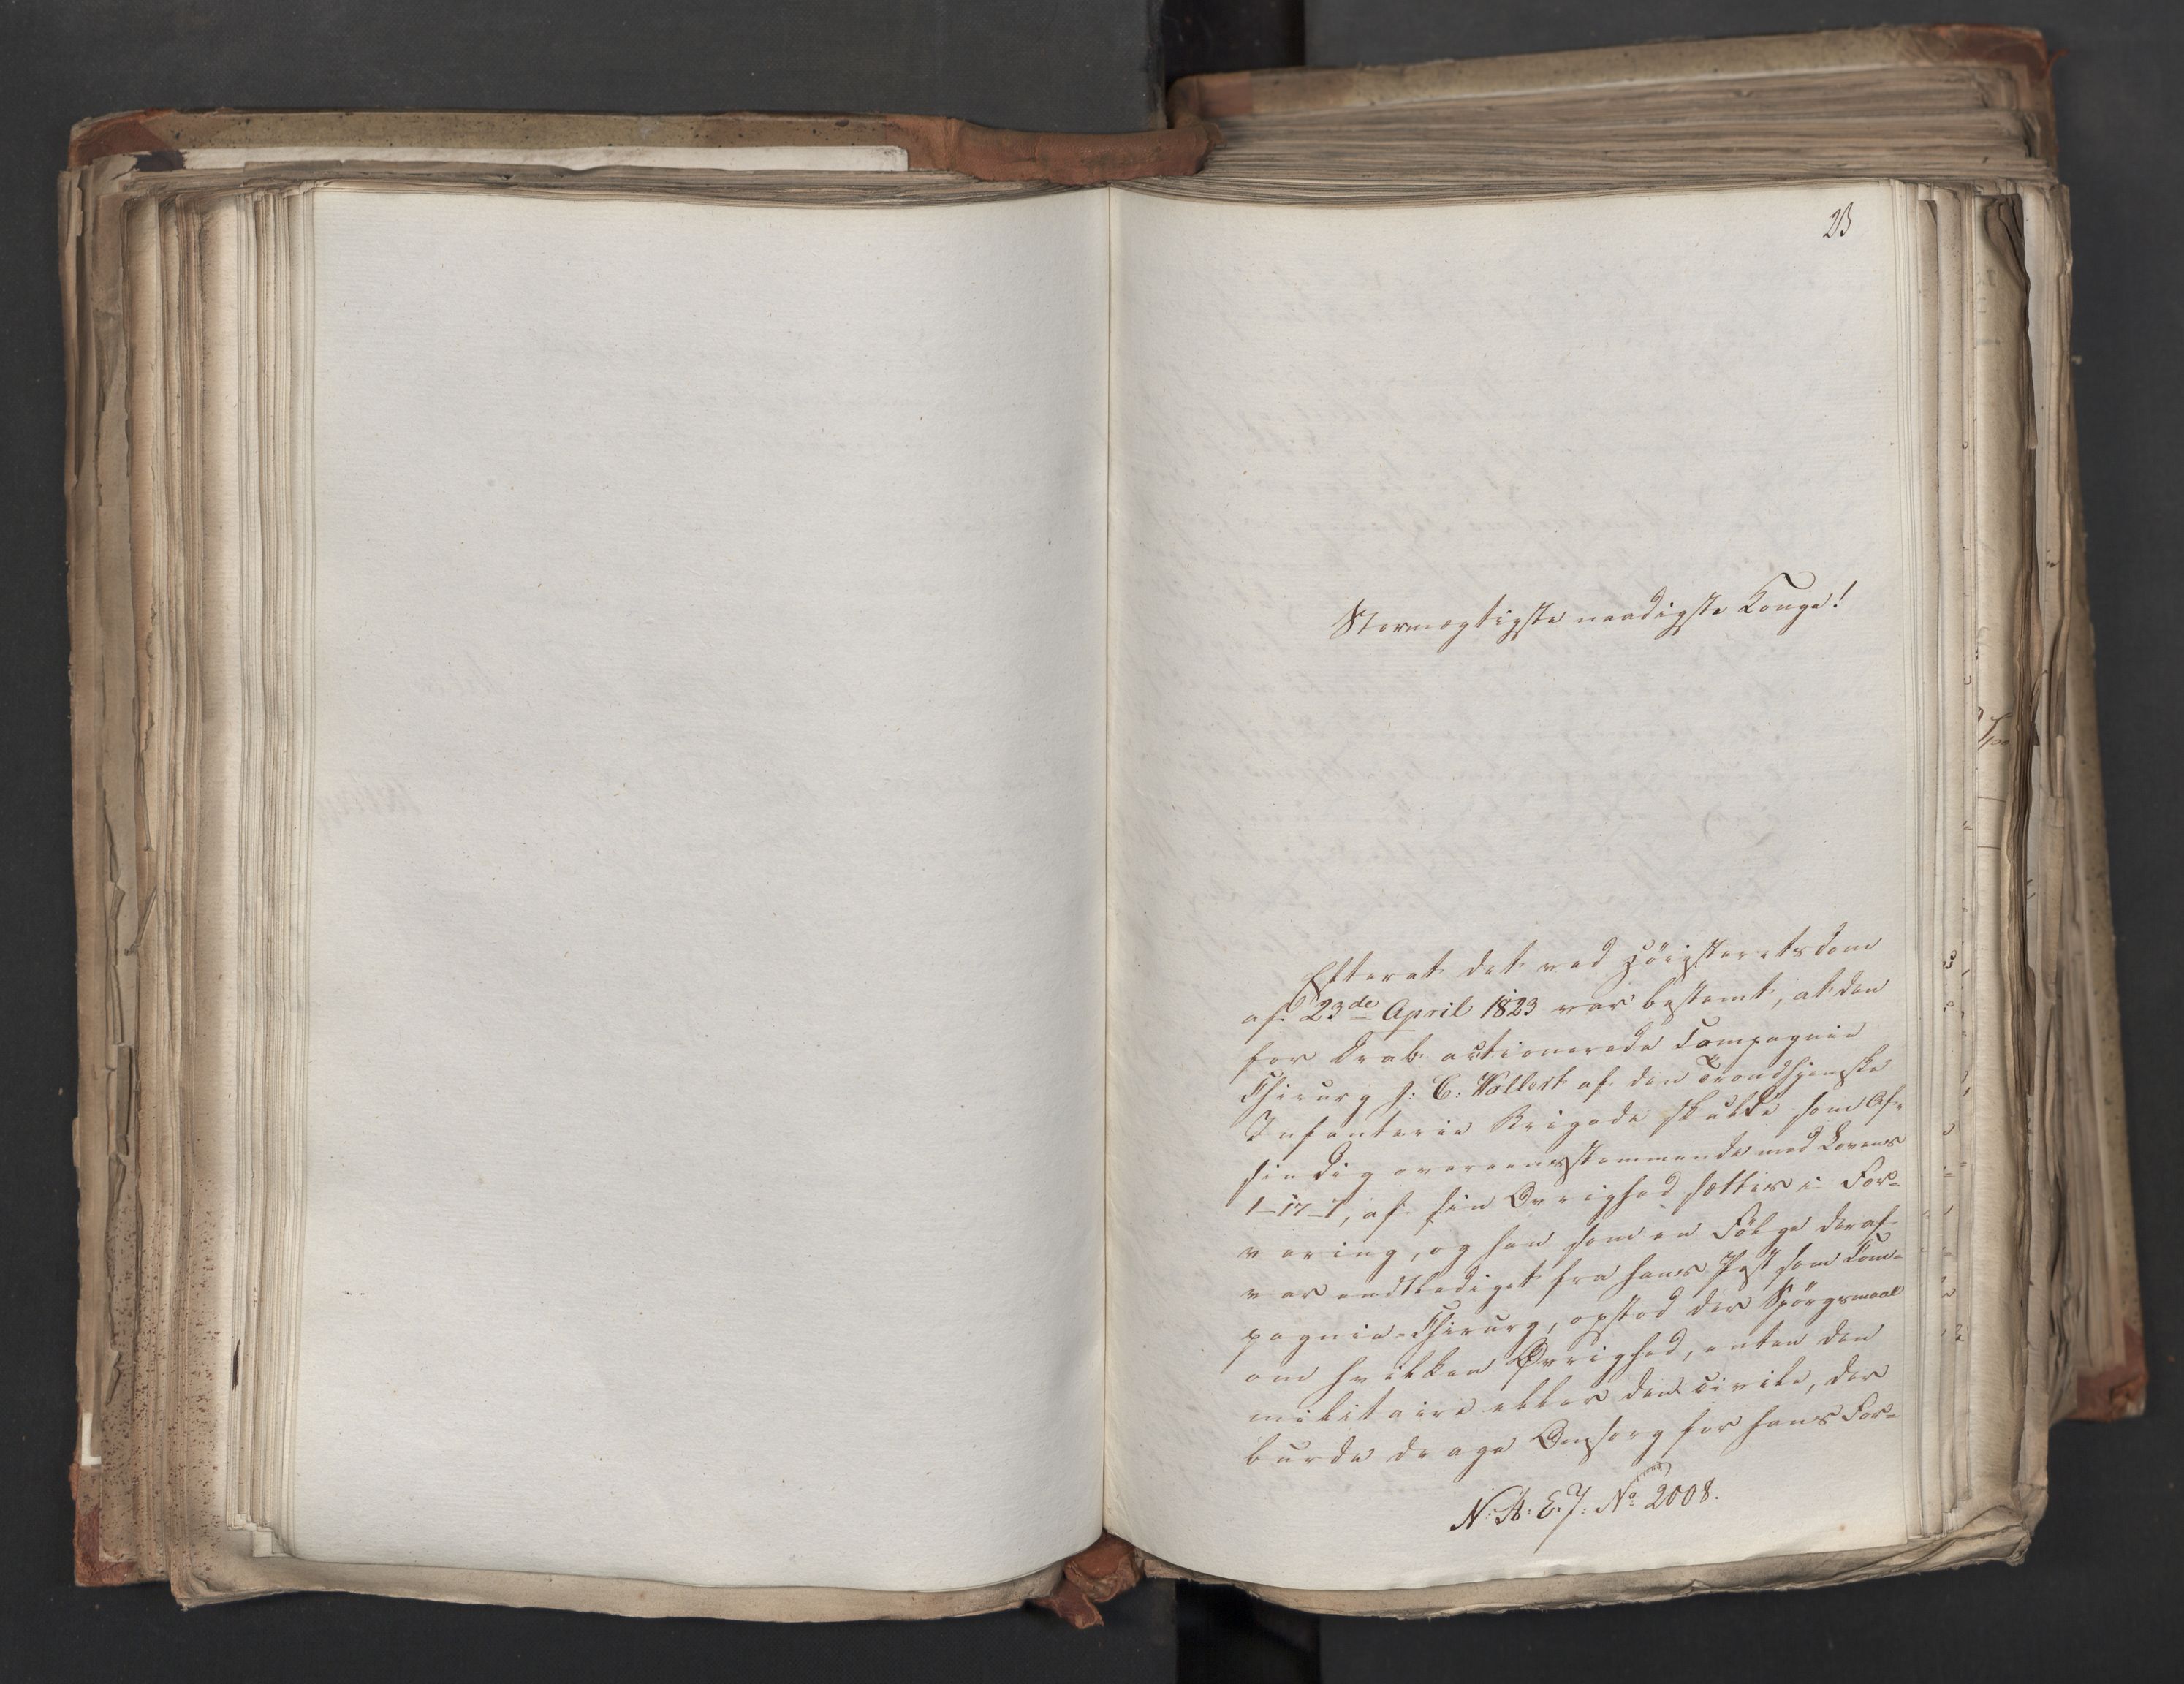 23
Stormægtigste naadigste Konge!
Efterat det ved Höiesteretsdom
af 23de April 1823 var bestemt, at den
for Drab actionerede Compagnie
Chirurg J: C: Vollert af den Trondhjemske
Infanterie Brigade skulde som Af-
sindig overeensstemmende med Lovens
1-17-7, af sin Øvrighed sættes i For-
varing, og han som en Fölge deraf
var endtlediget fra hans Post som Com-
pagnie-Chirurg, opstod der Spörgsmaal
om hvilken Øvrighed, enten den
militaire eller den civile, der
burde drage Omsorg for hans For-
N: A: E. J: No 2008.